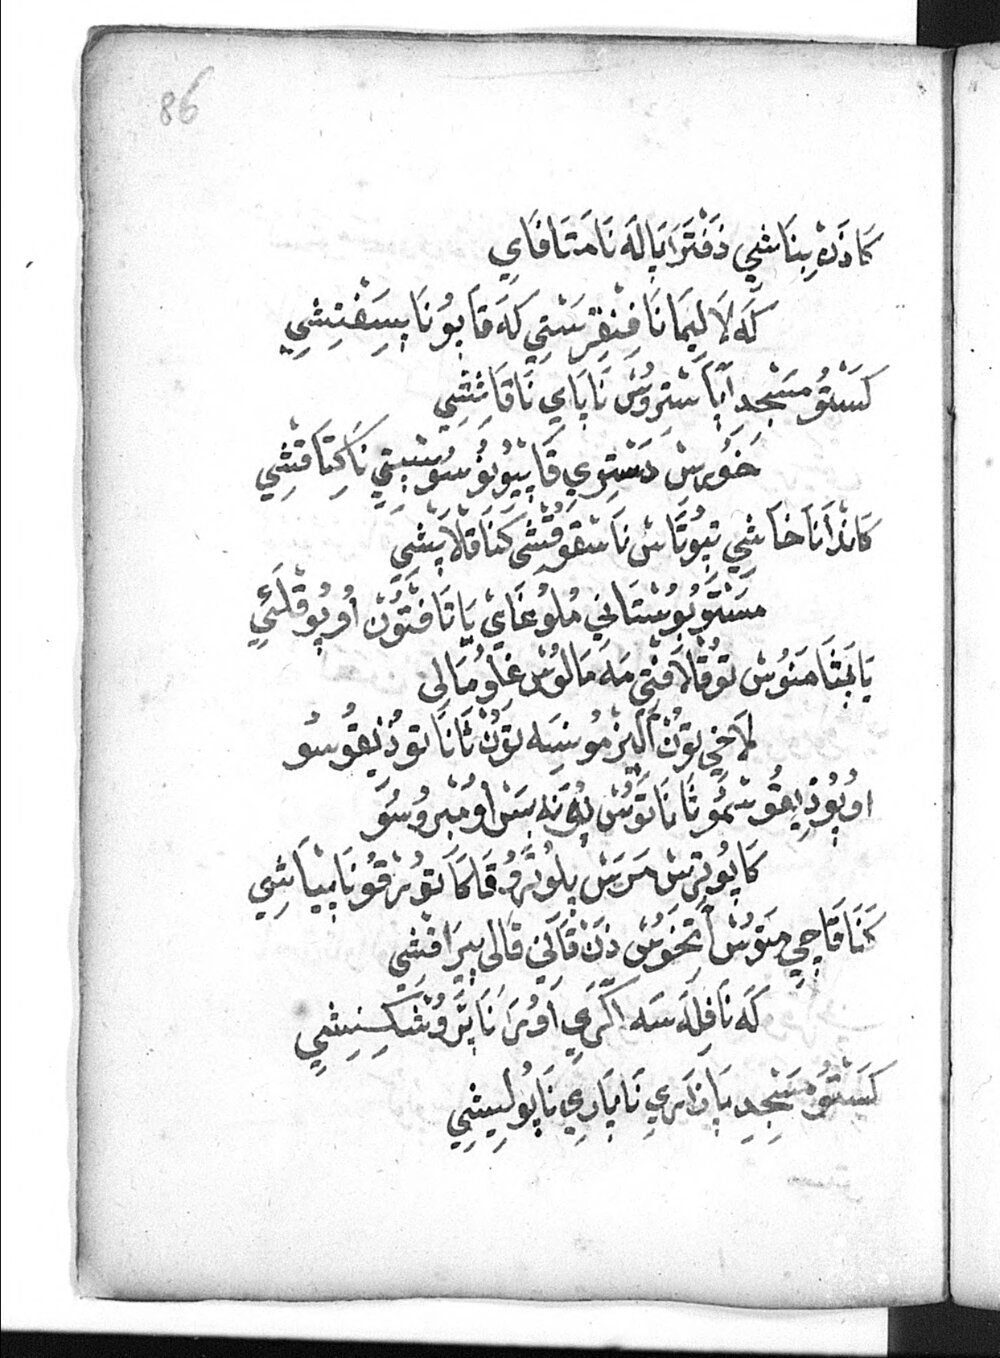 86
كَاذَرْ بِنَاشِي ذَفْتَرَا پَالَه نَامَتَافَايِ
كَه لَا لِيمَانَا فِنِفِرِسْتِي كَه قَاپُونَا پِسَفْتِشِي
كَسْتُو مَسْجِدِ اَپَاسْتِرُوسْ نَاپَايِ نَاقَاثِشِي
خَوُرِسْ دَسْتِرِي قَاپِيُونُو سُوسْپِتِي نَاكِتَاقْشِي
كَانْدَانَا خَاشِي تِپُوتَاسْ نَاسْقُوقْشِي كَنَا قَالَاپْشِي
مَسْتُو بُوسْتَانِي مُلُوغَايْ پَاتَافْتُونْ اُوپُوقَلَئِي
يَانْجَثَا مَنُوسْ تُوقَلَافْتِي مَه مَالُوسْ غَاوُمَالِي
لَاخِي تُونْ اَلِيزْمُونِسَه تُونْ ثَانَاتُو ذَنِيقُوسُو
اُوپُوذِيقُوسْمُو ثَانَاتُوسْ پُونَه بَسْ اُومْبْرُوسُو
كَاپُوتِرِسْ مَرَسْ پِلُوثَرُو قَاكَاتُورْقُونَا پِيَاشِي
كَنَا قَاچِي مَنُوسْ اَتْخَوُسْ ذَنْ قَانِي قَالَى پِيرَافْشِي
كَه نَافِلَه سَه اَكَّرِي اَوُرَا نَاپَرُوشَكِسِنِشِي
كَسْتُو مَسْجِدِ پَازَارِي نَاپَارِي نَاپُولِيشِي